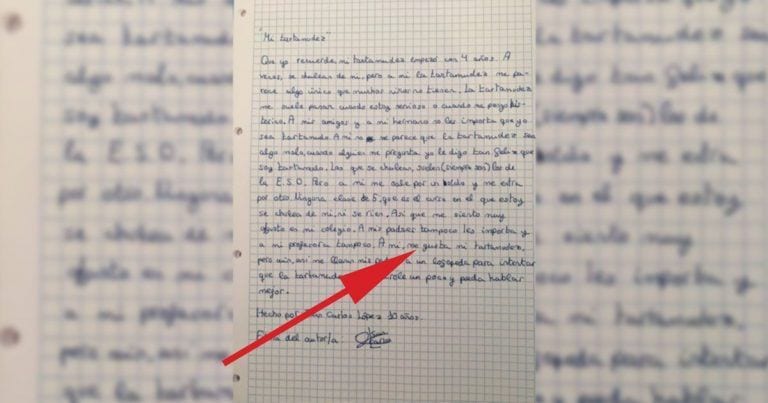 "Mi tartamudez"
Que yo recuerde, mi tartamudez empezó con 4 años. A
veces, se chulean de mi, pero a mi la tartamudez me pa-
rece algo único que muchos niños no tienen. La tartamudez
me suele pasar cuando estoy nervioso o cuando me pongo his-
térico. A mis amigos y a mi hermano no les importa que yo
sea tartamudo. A mi no me parece que la tartamudez sea
algo malo, cuando alguien me pregunta yo le digo tan feliz que
soy tartamudo. Los que se chulean, suelen (siempre son) los de
la E.S.O. Pero a mi me sale por un oído y me entra
por otro. Ninguna clase de 5, que es el curso en el que estoy
se chulea de mi, ni se ríen. Así que me siento muy
agusto en mi colegio. A mis padres tampoco les importa y
a mi profesora tampoco. A mi, me gusta mi tartamudez,
pero aún, así me llevan mis a un logopeda para intentar
que la controle un poco y pueda hablar
mejor.
Hecho por Carlos López 10 años.
Firma del autor/a